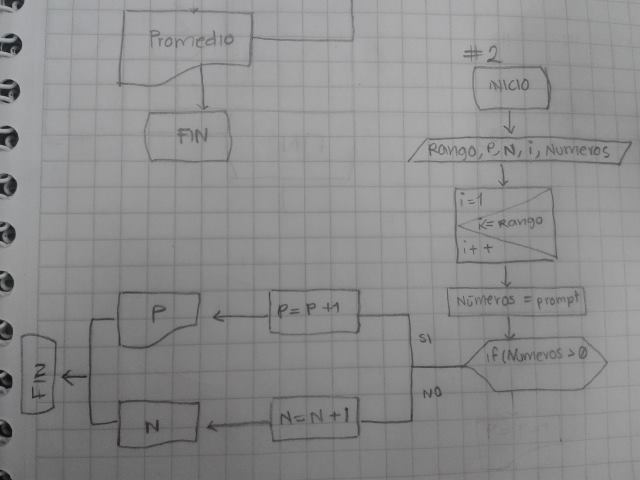 Promedio
FIN
#2
INICIO
Rango, P, N, i, Numeros
i=1
i<=Rango
i++
Números = prompt
if(Numeros>0
SI
NO
P=P+1
P
N=N+1
N
FIN